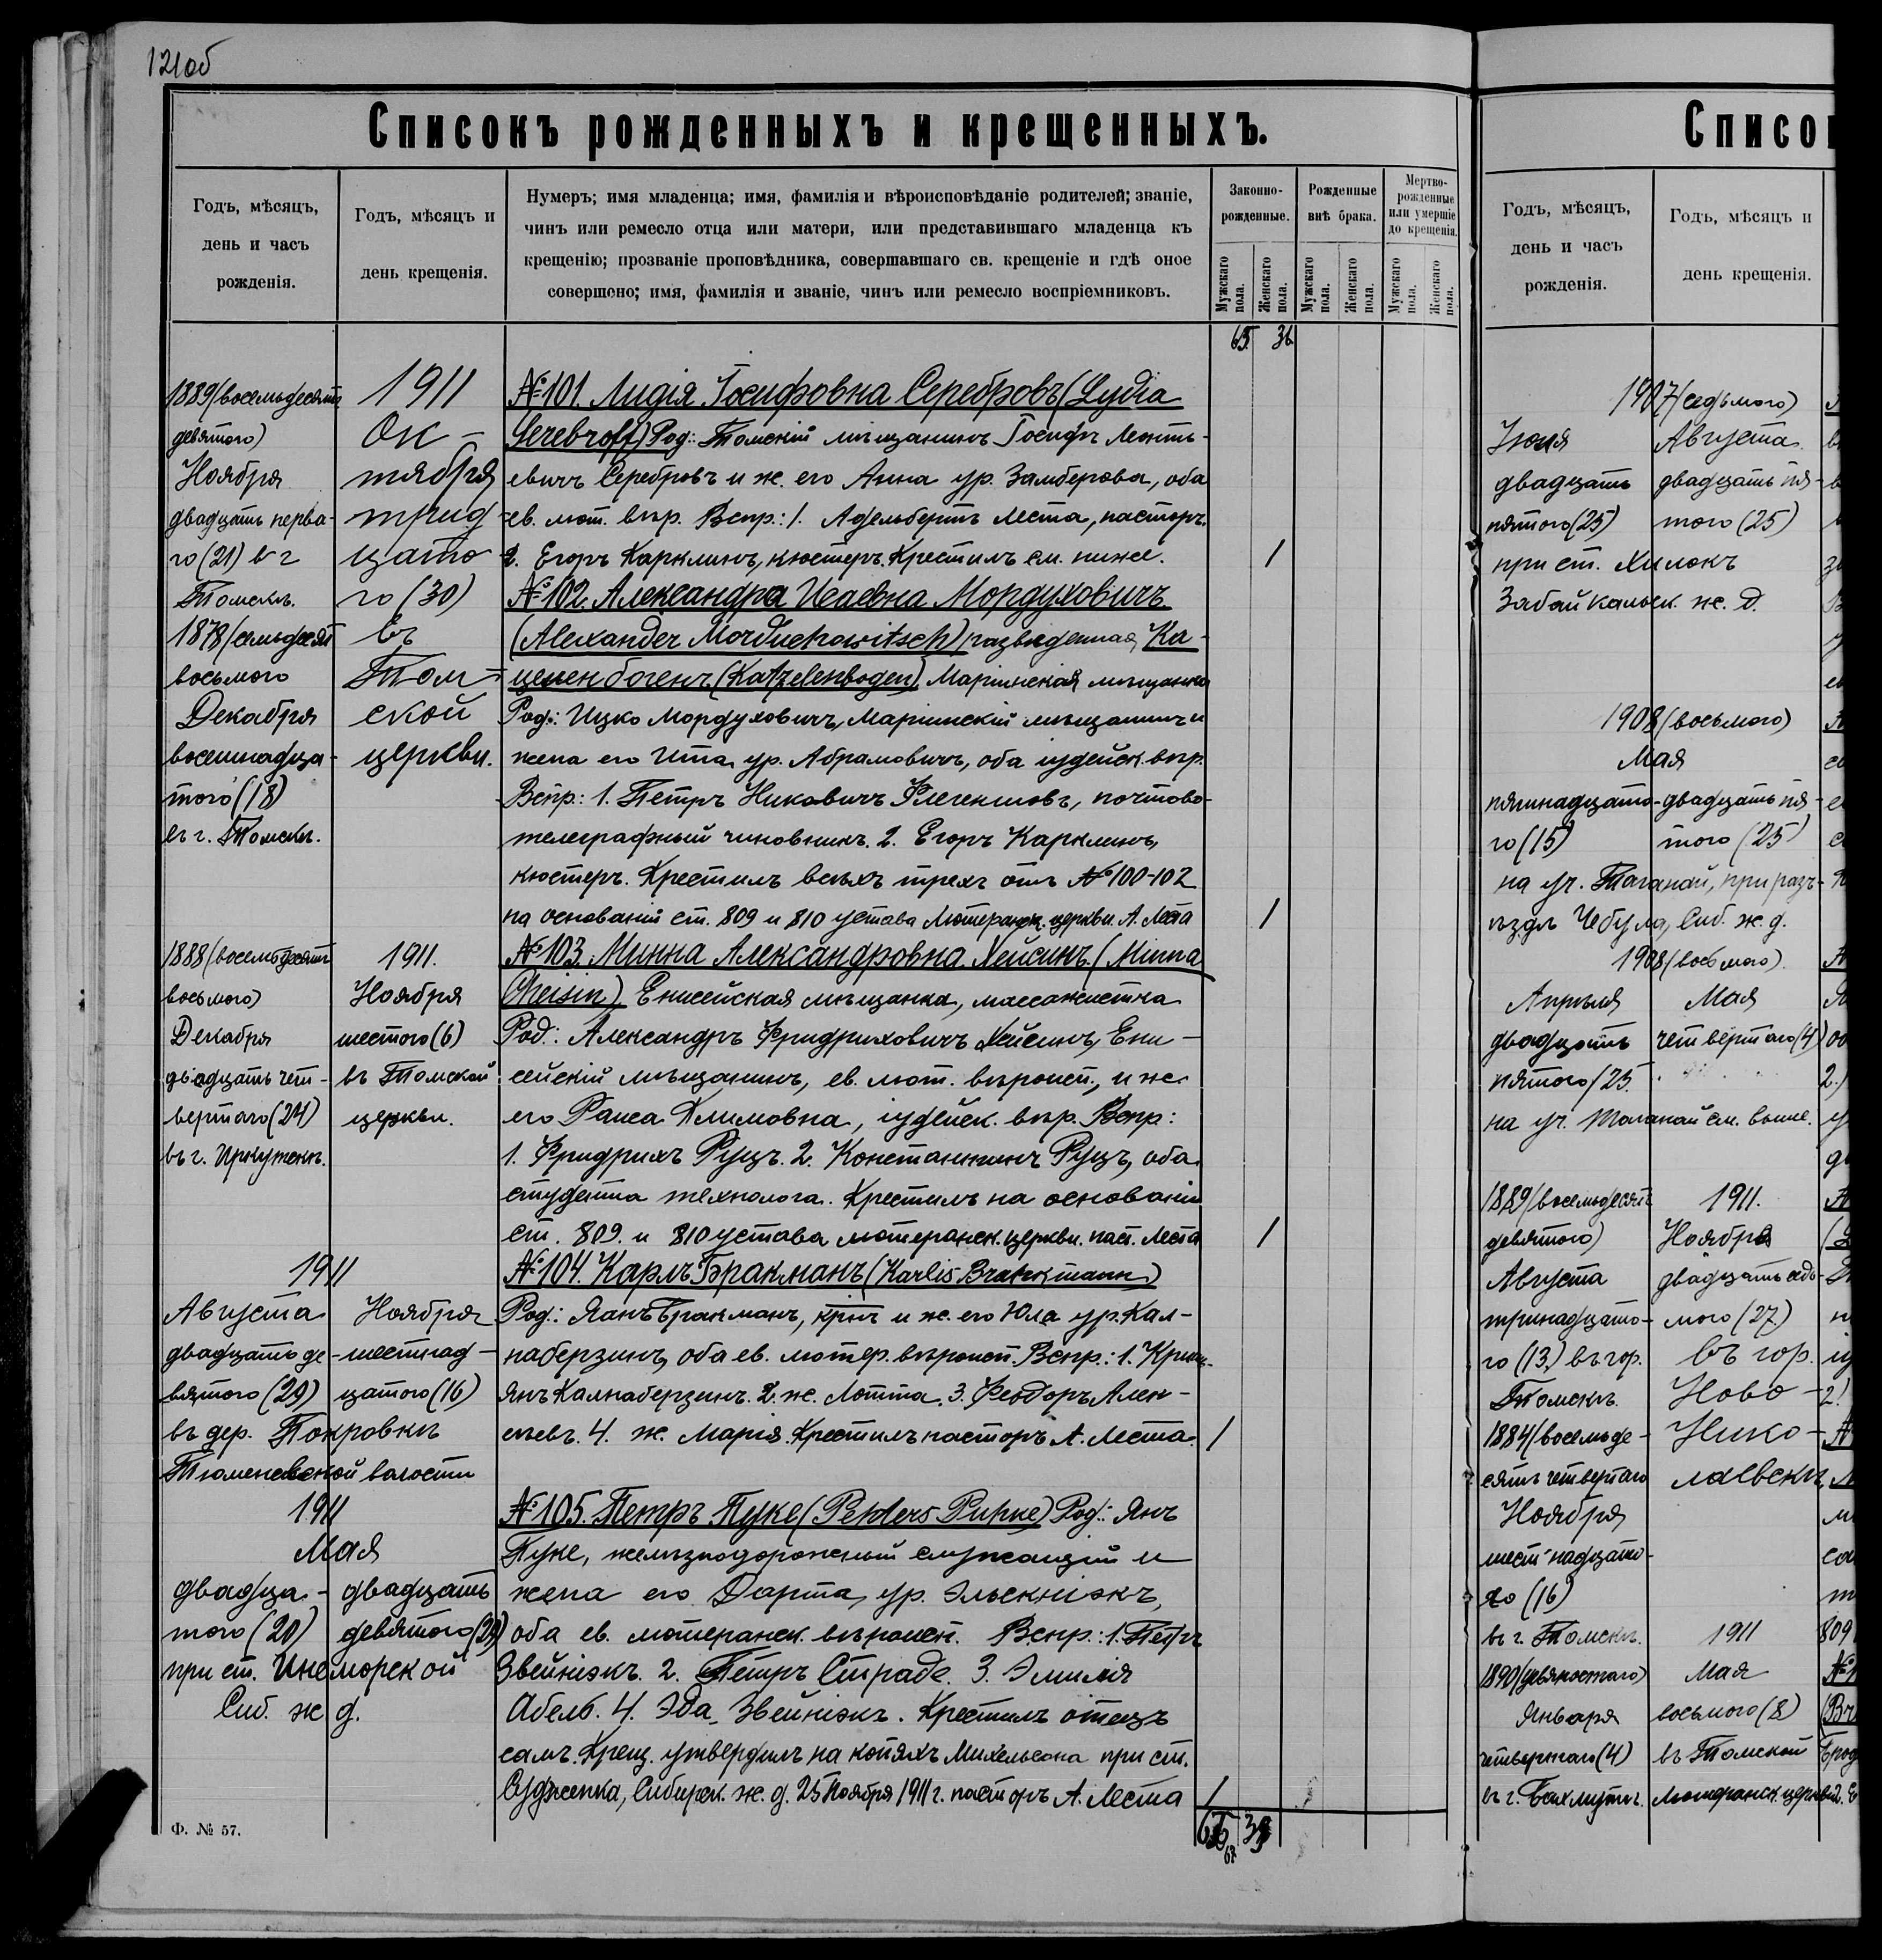 121об
Списокъ рожденныхъ и крещенныхъ.
Годъ, мѣсяцъ,
день и часъ
рожденія.
Годъ, мѣсяцъ и
день крещенія.
Нумеръ; имя младенца; имя, фамилія и вѣроисповѣданіе родителей; званіе,
чинъ или ремесло отца или матери, или представившаго младенца къ
крещенію; прозваніе проповѣдника, совершавшаго св. крещеніе и гдѣ оное
совершено; имя, фамилія и званіе, чинъ или ремесло воспріемниковъ.
Законно-
рожденные.
Рожденные
внѣ брака.
Мертво-
рожденные
или умершіе
до крещенія.
Мужскаго пола.
Женскаго пола.
Мужскаго пола.
Женскаго пола.
Мужскаго пола.
Женскаго пола.
65. 36
1889/восемьдесятъ
девятого)
Ноября
двадцать перва-
го (21) в г
Томскѣ.
1911
Ок-
тября
трид-
цато
го (30)
въ
Том-
ской
церкви.
№ 101. Лидія Іосифовна Серебровъ (Lydia
Serebroff) Род: Томскій мѣщанинъ Іосифъ Леонть-
евичъ Серебровъ и ж. его Анна ур. Замберова, оба
ев. лют. вѣр. Вспр.: 1. Адельбертъ Леста, пасторъ.
2. Егоръ Карклинъ, кюстеръ. Крестилъ см. ниже. 1
1878/семьдесят
восьмого
Декабря
восемнадца-
того (18)
въ г. Томскѣ.
№ 102. Александра Исаевна Мордуховичъ
(Alexander Morduchowitsch) разведенная Ка-
целенбогенъ (Katzelenbogen) Маріинская мѣщанка
Род.: Ицко Мордуховичъ, Маріинскій мѣщанинъ и
жена его Ита ур. Абрамовичъ, оба іудейск. вѣр.
Вспр.: 1. Петръ Никовичъ Флегентовъ, почтово-
телеграфный чиновникъ. 2. Егоръ Карклинъ,
кюстеръ. Крестилъ всѣхъ трехъ отъ № 100-102
на основаніи ст. 809 и 810 устава Лютеранск. церкви А. Леста 1
1888/восемьдесятъ
восьмого)
Декабря
двадцать чет-
вертаго (24)
въ г. Иркутскѣ.
1911.
Ноября
шестого (6)
въ Томской
церкви.
№ 103. Минна Александровна Хейсинъ. (Minna
Cheisin) Енисейская мѣщанка, массажистка
Род.: Александръ Фридриховичъ Хейсинъ, Ени-
сейскій мѣщанинъ, ев. лют. вѣроисп., и ж.
его Раиса Климовна, іудейск. вѣр. Вспр:
1. Фридрихъ Руцъ. 2. Константинъ Руцъ, оба
студента технолога. Крестилъ на основаніи
ст. 809. и 810 устава лютеранск. церкви. паст. Леста 1
1911
Августа
двадцато де-
вятого (29)
въ дер. Покровкѣ
Тюменевской волости
Ноября
шестнад-
цатого (16)
№ 104. Карлъ Бракманъ (Karlis Brahkmann)
Род.: Янъ Бракманъ, крнъ и ж. его Юла ур. Кал-
наберзинъ, оба ев. лютер. вѣроисп. Вспр.: 1. Крис-
янъ Калнаберзинъ. 2. ж. Лотта. 3. Феодоръ Алек-
сѣевъ. 4. ж. Марія. Крестилъ пасторъ А. Леста. 1
1911
Мая
двадца-
того (20)
при ст. Иноморской
Сиб. ж д.
двадцать
девятого (29)
№ 105. Петръ Пуке (Pehters Puhke) Род.: Янъ
Пуке, желѣзнодорожный служащій и
жена его Дарта, ур. Эльскніэкъ,
оба ев. лютеранск. вѣроисп. Вспр.: 1. Петръ
Звейніэкъ. 2. Петръ Страде. 3. Эмилія
Абель. 4. Эда Звейніэкъ. Крестилъ отецъ
самъ. Крещ. утвердилъ на копяхъ Михельсона при ст.
Судженка, Сибирск. ж. д. 25 Ноября 1911 г. пасторъ А. Леста 1
67 39
Ф. № 57.
Списо
Годъ, мѣсяцъ,
день и часъ
рожденія.
Годъ, мѣсяцъ и
день крещенія.
1907 (седьмого)
Іюля
двадцать
пятого (25)
при ст. Хилокъ
Забайкальск. ж. д.
Августа
двадцать пя-
того (25)
1908 (восьмого)
Мая
пятнадцато-
го (15)
двадцать пя-
того (25)
на уч. Таганай, при разъ-
ѣздѣ Чебула, Сиб. ж. д.
1908 (восьмого)
Апрѣля
двадцать
пятого/25.
Мая
четвертаго (4)
на уч. Таганай см. выше.
1889/восемьдесятъ
девятого)
Августа
тринадцато-
го (13) въ гор.
Томскѣ.
1911.
Ноября
двадцать седь-
мого (27)
въ гор.
Ново-
Нико-
лаевскѣ
1884/восемьде-
сятъ четвертаго
Ноября
шестнадцато-
го (16)
въ г. Томскѣ.
1890/девяностаго)
Января
четвертаго (4)
въ г. Бахмутѣ.
1911
Мая
восьмого (8)
въ Томской
Лютеранск. церкви.